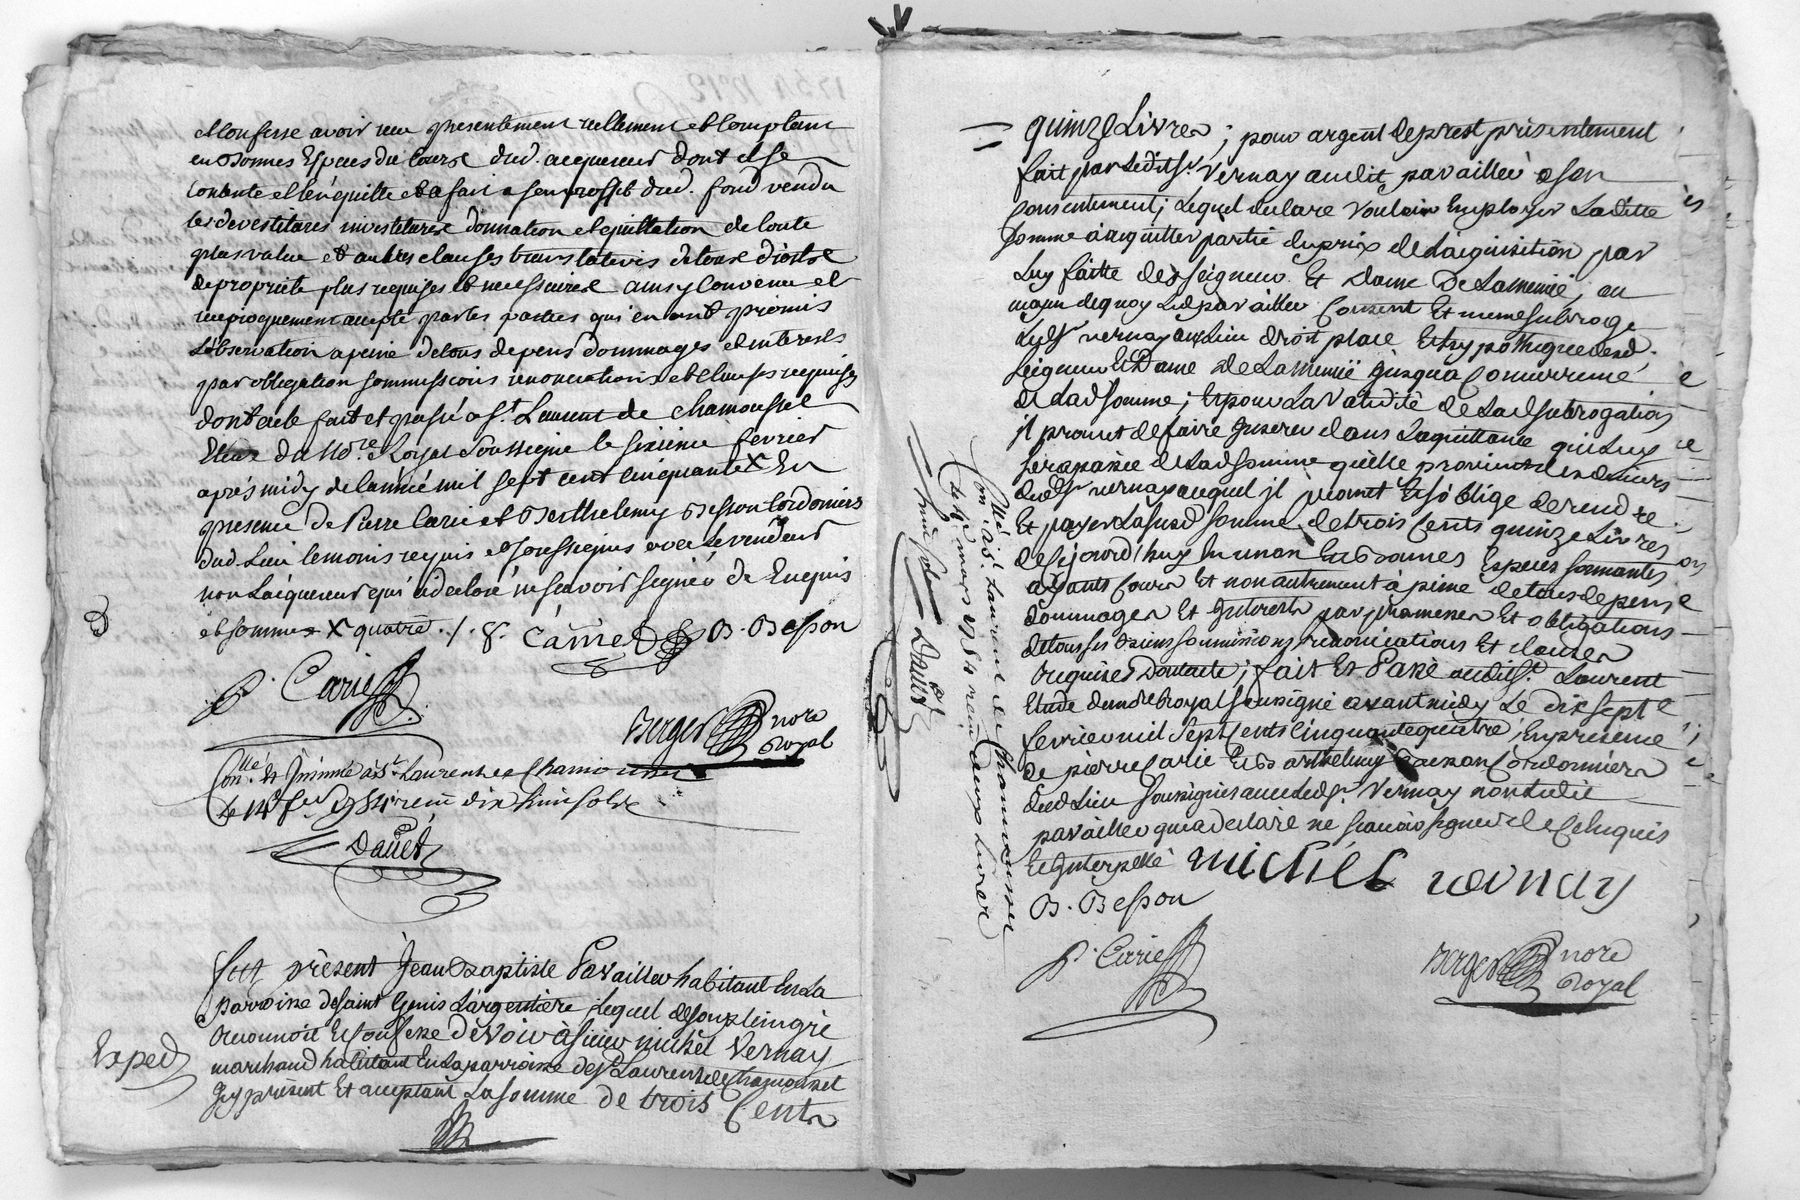 et Confesse avoir reçu presentement reellement et Comptant
en bonnes Especes du Cours dud. acquereur dont il se
Contente et l'en quitte et a fait a son proffit dud. fond vendu
les devestitures investitures donnation et quittation de toute
plus value et autres clauses translatives de tous droits
de propriete plus requises et necessaires ainsy Convenu et
reciproquement accepté par les parties qui en ont promis
L'observation a peine de tous depens dommages et interests
par obligation sommissions renonciations et clauses requises
dont acte fait et passé a St. Laurent de chamousset
Etude du No.re Royal Soussigné le sixieme fevrier
aprés midy de l'année mil sept cent cinquante X En
presence de Pierre Carie et Berthelemy Besson Cordoniers
dud. Lieu temoins requis et soussignés avec Le vendeur
non L'acquereur qui a declaré ne scavoir signer de Enquis
et sommé X quatre ./. 8. Camet B. Besson
P. Carie
Berger nore
Royal
Con.llé Et Insinué a St. Laurent de Chamousset
le 14e fev. 1754 reçu dix huit sols
Dauet
fut présent Jean Baptiste Pavaillier habitant En La
parroisse de Saint Genis L'argentière Lequel de son plein gré
Reconnoit Et Confesse dEvoir à Sieur michel Vernay
marchand habitant En La parroisse de St Laurent de Chamousset
Icy présent Et acceptant La somme de trois Cents
Exped
quinze Livres ; pour argent de prest présentement
fait par Ledit Sr. Vernay audit pavaillier a son
Consentement ; Lequel declare Vouloir Employer Ladite
somme à acquitter partie du prix de L'acquisition par
Luy faitte des seigneur Et Dame De Lamenüe ; au
moyen de quoy Led pavaillier Consent Et meme subroge
Led Sr vernay au Lieu droit place Et hypotheque desd.
seigneur Et Dame de Lamenüe jusqua Concurrence
de Lad somme ; Et pour La validité de Lad subrogation
il promet de faire Inserer dans La quittance qui Luy
sera passée de Lad somme quelle provient des deniers
dud Sr vernay auquel il promet Et s'oblige de rendre
Et payer La susd somme de trois Cents quinze Livres
dejourdhuy En un an En bonnes Especes sonnantes
ayants Cours Et non autrement à peine de tous depens
dommages Et Interests par promesses Et obligations
de tous ses biens soumissions renonciations Et clauses
Requises Dont acte ; fait Et Passé audit St. Laurent
Etude du no.re Royal soussigné avant midy Le dix sept
fevrier mil Sept Cents Cinquante quatre ; En présence
de pierre Carie Et Barthelemy Besson Cordonniers
dud Lieu soussignés avec Led Sr. Vernay non Ledit
pavaillier qui a declaré ne scavoir signer de Ce Enquis
Et Interpellé michel vernay
B. Besson
P. Carie
Berger nore
Royal
Con.llé à St. Laurent de Chamousset
Le 4 mars 1754 reçu deux livres
huit sols
Dauet